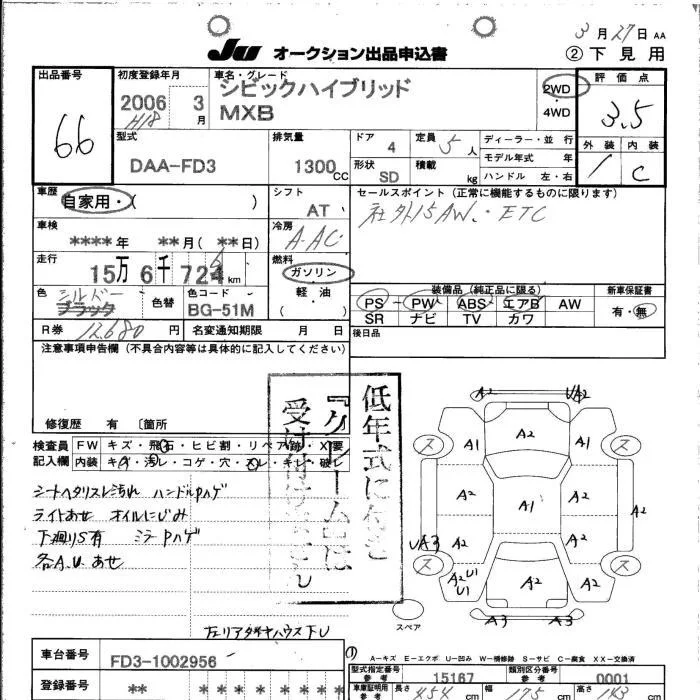 3月27日 AA
JU オークション出品申込書 ②下見用
出品番号 66
初度登録年月 2006年 3月 H18
車名・グレード シビックハイブリッド MXB
2WD 4WD
評価点 3.5
外装 1 内装 C
型式 DAA-FD3
排気量 1300CC
ドア 4
定員 5人
形状 SD
積載 kg
ディーラー・並行
モデル年式 年
ハンドル 左・右
車歴 自家用・( )
シフト AT
セールスポイント(正常に機能するものに限ります)
社外15AW・ETC
車検 ****年 **月(**日)
冷房 A-AC
走行 15万6千72 km
燃料 ガソリン 軽・油 ( )
色 シルバー ブラック 色替
色コード BG-51M
装備品(純正品に限る)
PS PW ABS エアB AW
SR ナビ TV カワ
新車保証書 有・無
R券 12,680円
名変通知期限 月 日
後日品
注意事項申告欄(不具合内容等は具体的に記入してください)
修復歴 有 〔箇所
低年式に付き
『クレーム』は
受け付けません
検査員記入欄
FW キズ・飛石・ヒビ割・リペア跡・X要
内装 キズ・汚レ・コゲ・穴・スレ・キレ・破レ
シートヘタリスレ汚れ ハンドルPハゲ
ライトあせ オイルにじみ
下廻りS有 ミラーPハゲ
各A.U.あせ
左リアタイヤハウス下U
A2 UA2
ス A1 A2 A1 ス
A2 A1 A2 A2
UA3 A2 A2
ス A2 U1 U1 A2 A2 ス
A3 A3
スペア
A-キズ E-エクボ U-凹み W-補修跡 S-サビ C-腐食 XX-交換済
車台番号 FD3-1002956
登録番号 ** * * * * * * *
型式指定番号 参考 15167
類別区分番号 参考 0001
車庫証明用 参考 長さ 454cm 幅 175cm 高さ 143cm